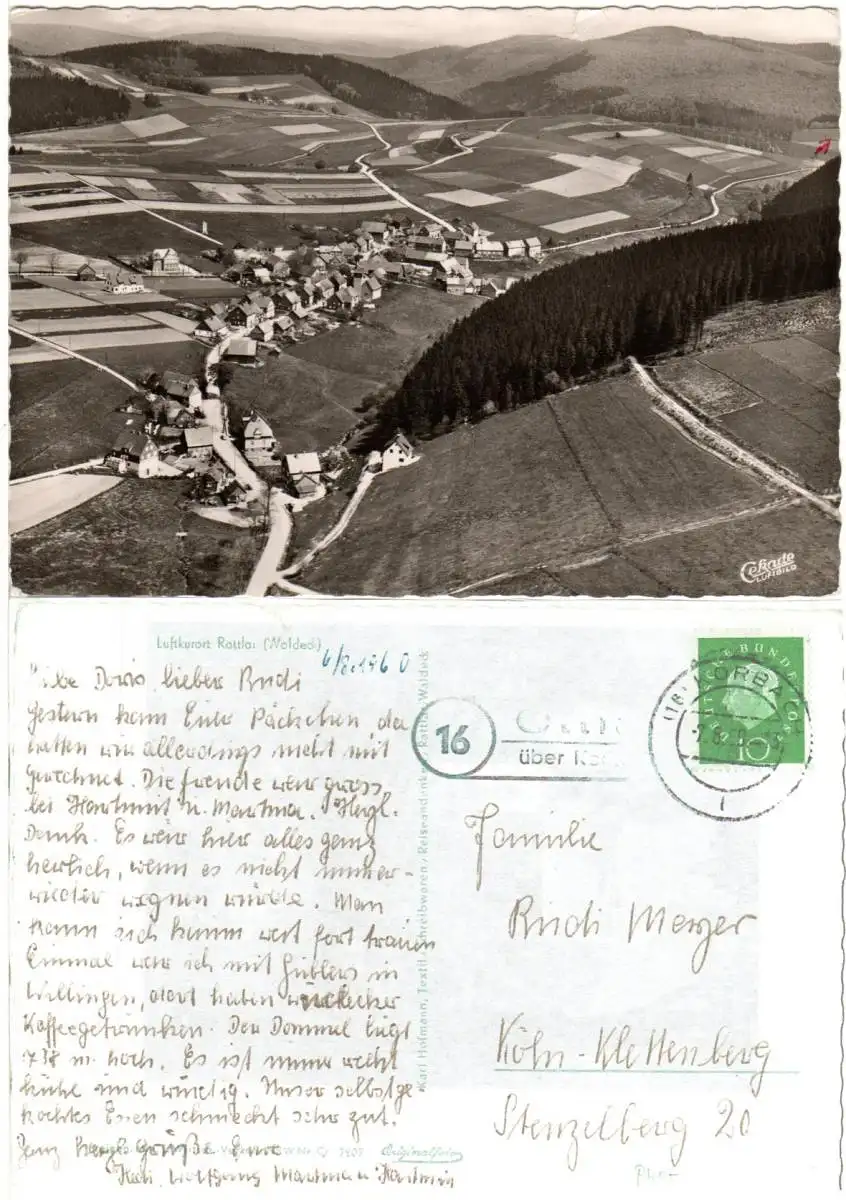 Cekade
LUFTBILD
Luftkurort Rattlar (Waldeck)
6/8.1960
Liebe Doris, lieber Rudi
Gestern kam Euer Päckchen da
hatten wir allerdings nicht mit
gerechnet. Die Freude war gross
bei Hartmut u. Martina. Hzgl.
Dank. Es wär hier alles ganz
herlich, wenn es nicht immer-
wieder regnen würde. Man
kann sich kaum weit fort trauen
Einmal war ich mit Güblers in
Willingen, dort haben wir lecker
Kaffeegetrunken. Der Dommel liegt
738 m. hoch. Es ist immer recht
kühl und windig. Unser selbstge
kochtes Essen schmeckt sehr gut.
Ganz herzl. Grüße Eure
Wolfgang Martina u Hartmut
Karl Hofmann, Textil, Schreibwaren, Reiseandenken, Rattlar/Waldeck
Originalfoto
16
über Kor
(16) KORBACH
DEUTSCHE BUNDESPOST
10
Familie
Rudi Meyer
Köln-Klettenberg
Stenzelberg 20